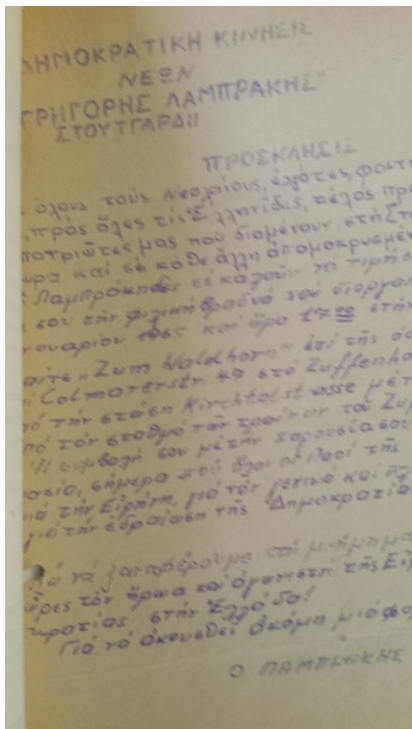 ΔΗΜΟΚΡΑΤΙΚΗ ΚΙΝΗΣΙΣ
ΝΕΩΝ
ΓΡΗΓΟΡΗΣ ΛΑΜΠΡΑΚΗΣ"
ΣΤΟΥΤΓΑΡΔΗ
ΠΡΟΣΚΛΗΣΙΣ
όλους τούς Νεολαίους, ἐργάτες, φοιτη
πρός ὅλες τίς Ἑλληνίδες, τέλος πρ
πατριῶτες μας πού διαμένουν στή Στ
καί σέ κάθε ἄλλη ἀπομακρυσμέν
Λαμπράκηδες σέ καλοῦν νά τιμήσ
σου τήν φιλική βραδυά πού διοργαν
νουαρίου 1965 καί ὥρα 17 στήν
"Zum Waldhorn" ἐπί τῆς ὁδ
Colmarerstr. 47 στό Zuffenha
τήν στάση Kirchtalstrasse μέ τ
ἀπό τόν σταθμό τῶν τραίνων τοῦ Zuf
Ἡ συμβολή σου μέ τήν παρουσία σου
σήμερα πού ὅλοι οἱ τῆς
γιά τήν Εἰρήνη, γιά τόν καί
γιά τήν ἑδραίωση τῆς Δημοκρατία
νά ξαναφέρουμε στή μνήμη μα
τόν ἥρωα καί ἀγωνιστή τῆς Εἰρ
κρατίας στήν Ἑλλάδα!
Γιά νά ἀκουσθεῖ ἀκόμη μιά φο
Ο ΛΑΜΠΡΑΚΗΣ